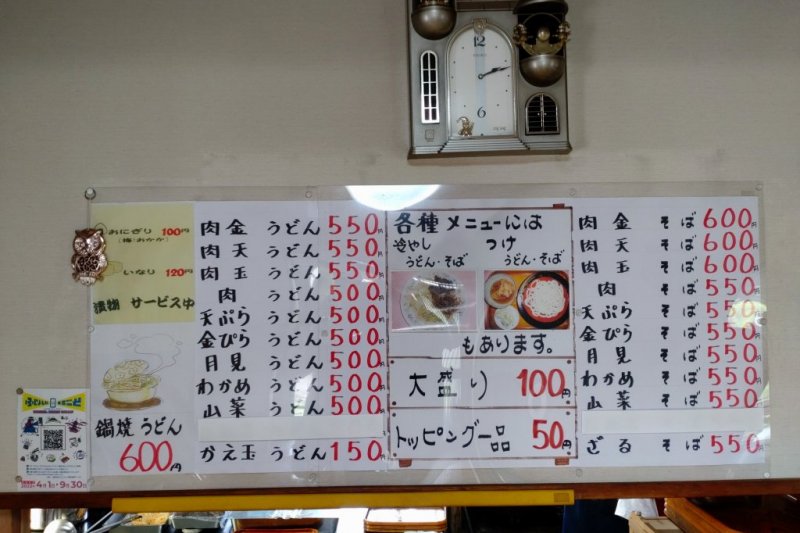 12
6
おにぎり 100円
(梅・おかか)
いなり 120円
漬物 サービス中
鍋焼うどん
600円
肉金 うどん 550円
肉天 うどん 550円
肉玉 うどん 550円
肉 うどん 500円
天ぷら うどん 500円
金ぴら うどん 500円
月見 うどん 500円
わかめ うどん 500円
山菜 うどん 500円
かえ玉 うどん 150円
各種 メニューには
冷やし つけ
うどん・そば うどん・そば
もあります。
大盛り 100円
トッピング一品 50円
肉金 そば 600円
肉天 そば 600円
肉玉 そば 600円
肉 そば 550円
天ぷら そば 550円
金ぴら そば 550円
月見 そば 550円
わかめ そば 550円
山菜 そば 550円
ざる そば 550円
4月1日-9月30日